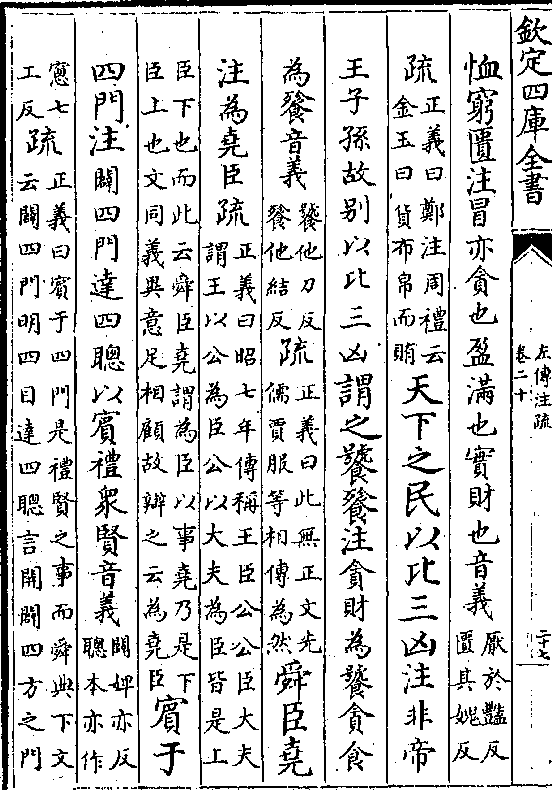 欽定四庫全書
左傳注疏
卷二十
二十七
恤窮匱注冒亦貪也盈滿也實財也音義厭於豔反
匱其媿反
疏正義曰鄭注周禮云
金玉曰貨布帛而賄天下之民以比三凶注非帝
王子孫故别以比三凶謂之饕餮注貪財為饕貪食
為餮音義饕他刀反
餮他結反疏正義曰此無正文先
儒賈服等相傳為然舜臣堯
注為堯臣疏正義曰昭七年傳稱王臣公公臣大夫
謂王以公為臣公以大夫為臣皆是上
臣下也而此云舜臣堯謂為臣以事堯乃是下
臣上也文同義異意足相顧故辨之云為堯臣賓于
四門注闢四門達四聰以賓禮衆賢音義闢婢亦反
聰本亦作
窻七
工反疏正義曰賓于四門是禮賢之事而舜典下文
云闢四門明四目達四聰言開闢四方之門